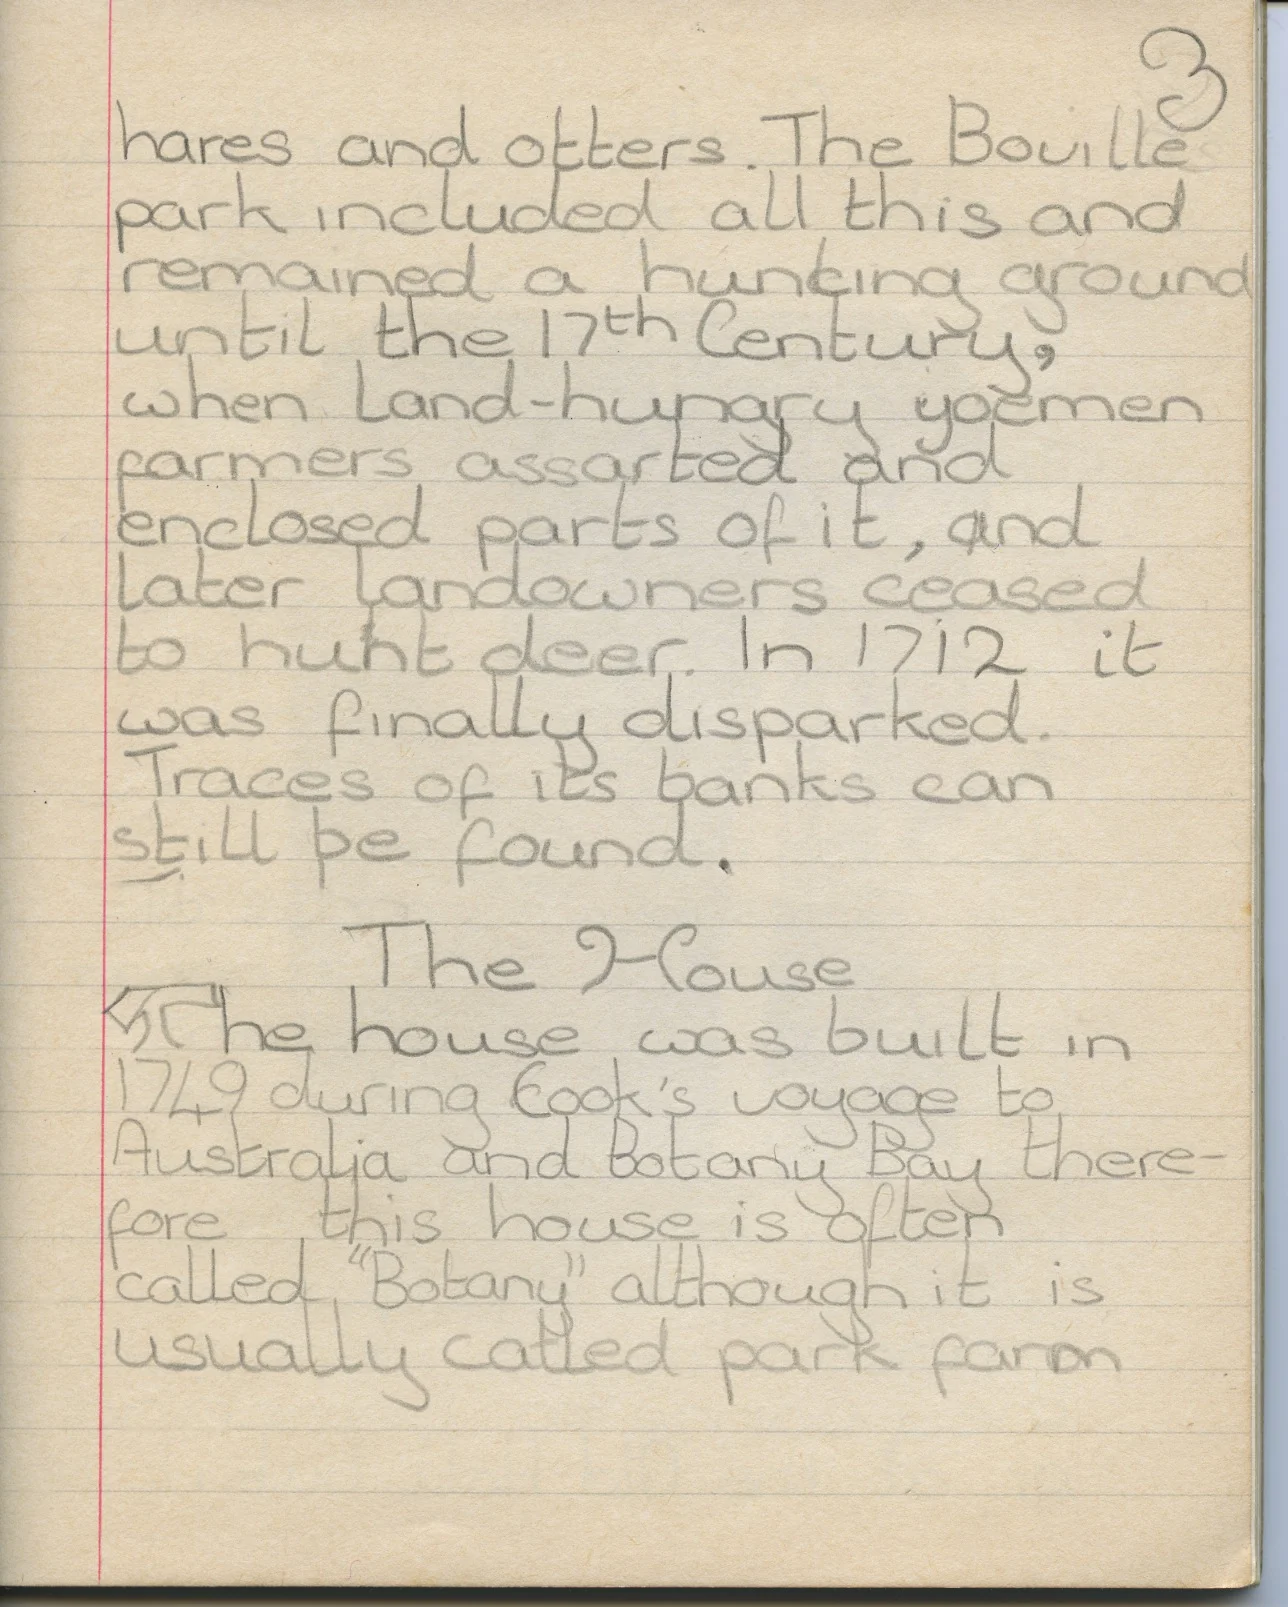 3
hares and otters. The Boville
park included all this and
remained a hunting ground
until the 17th Century,
when land-hungry yoemen
farmers assarted and
enclosed parts of it, and
later landowners ceased
to hunt deer. In 1712 it
was finally disparked.
Traces of its banks can
still be found.
The House
The house was built in
1749 during Cook's voyage to
Australia and Botany Bay there-
fore this house is often
called "Botany" although it is
usually called park farm